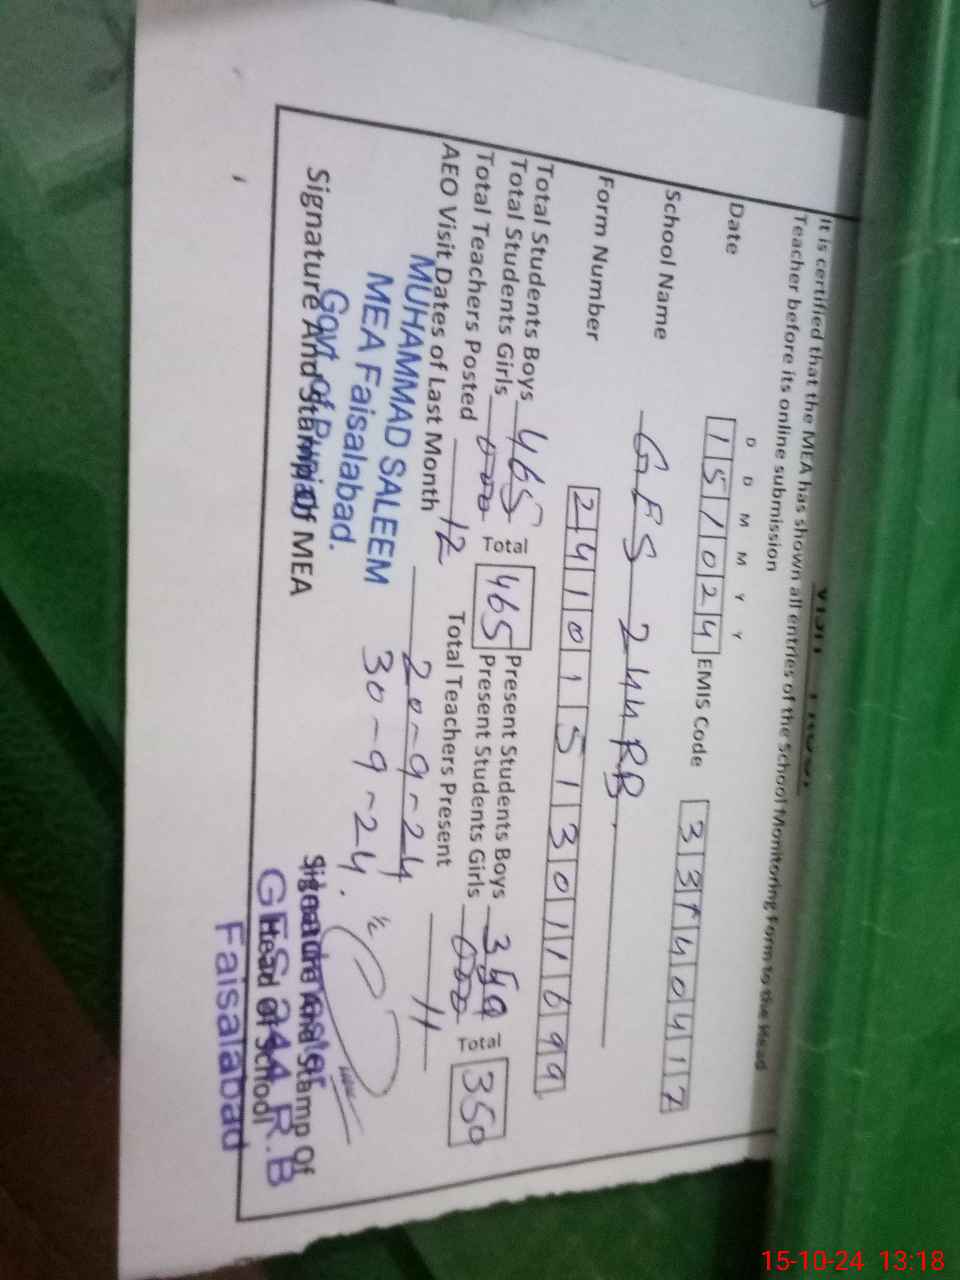 It is certified that the MEA has shown all entries of the School Monitoring Form to the Head
Teacher before its online submission
D D M M Y Y
Date 151024 EMIS Code 33140417
School Name GES 244RB.
Form Number 24101513011699
Total Students Boys 465 Total 465 Present Students Boys Total 350
Total Students Girls 000 Present Students Girls 000
Total Teachers Posted 12 Total Teachers Present 11
AEO Visit Dates of Last Month 20-9-24
30-9-24.
MUHAMMAD SALEEM
MEA Faisalabad.
Govt of Punjab
Signature And Stamp Of MEA
Signature And Stamp Of
Head of School
GES 244 R.B
Faisalabad
15-10-24 13:18